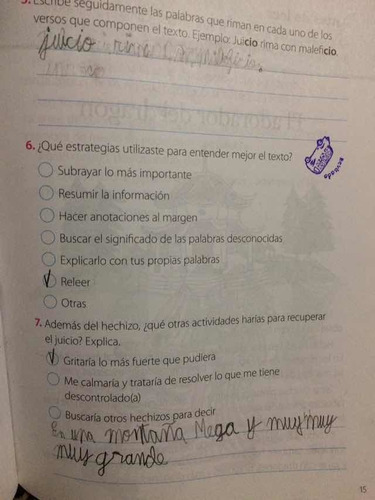 5. Escribe seguidamente las palabras que riman en cada uno de los
versos que componen el texto. Ejemplo: Juicio rima con maleficio.
juicio
6. ¿Qué estrategias utilizaste para entender mejor el texto?
Subrayar lo más importante
Resumir la información
Hacer anotaciones al margen
Buscar el significado de las palabras desconocidas
Explicarlo con tus propias palabras
Releer
Otras
7. Además del hechizo, ¿qué otras actividades harías para recuperar
el juicio? Explica.
Gritaría lo más fuerte que pudiera
Me calmaría y trataría de resolver lo que me tiene
descontrolado(a)
Buscaría otros hechizos para decir
En una montaña Mega y muy muy
muy grande
15